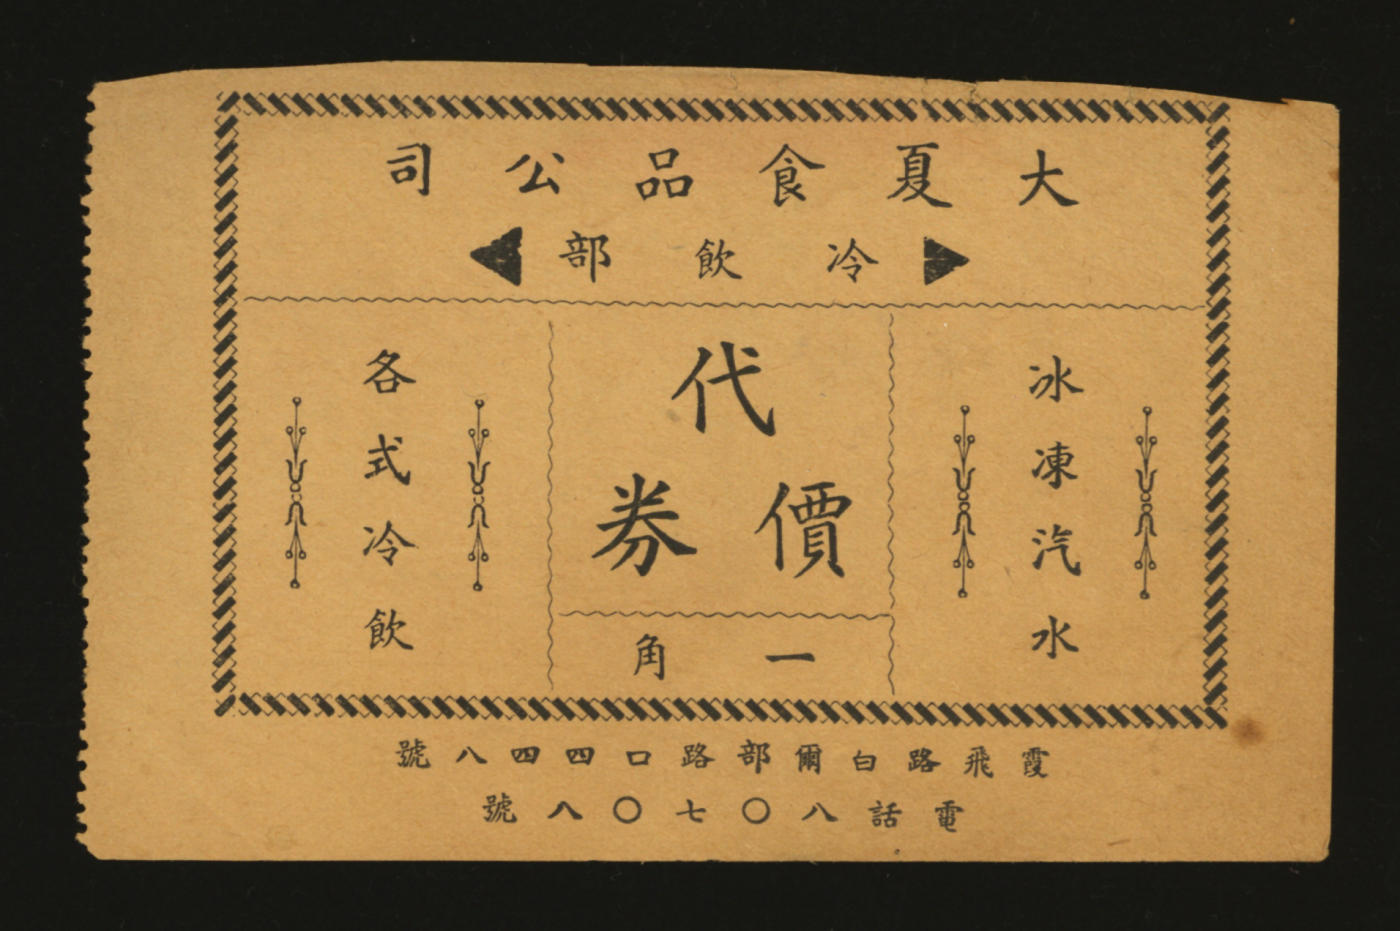 大夏食品公司
冷飲部
冰凍汽水
代價券
一角
各式冷飲
霞飛路白爾部路口四四八號
電話八〇七〇八號